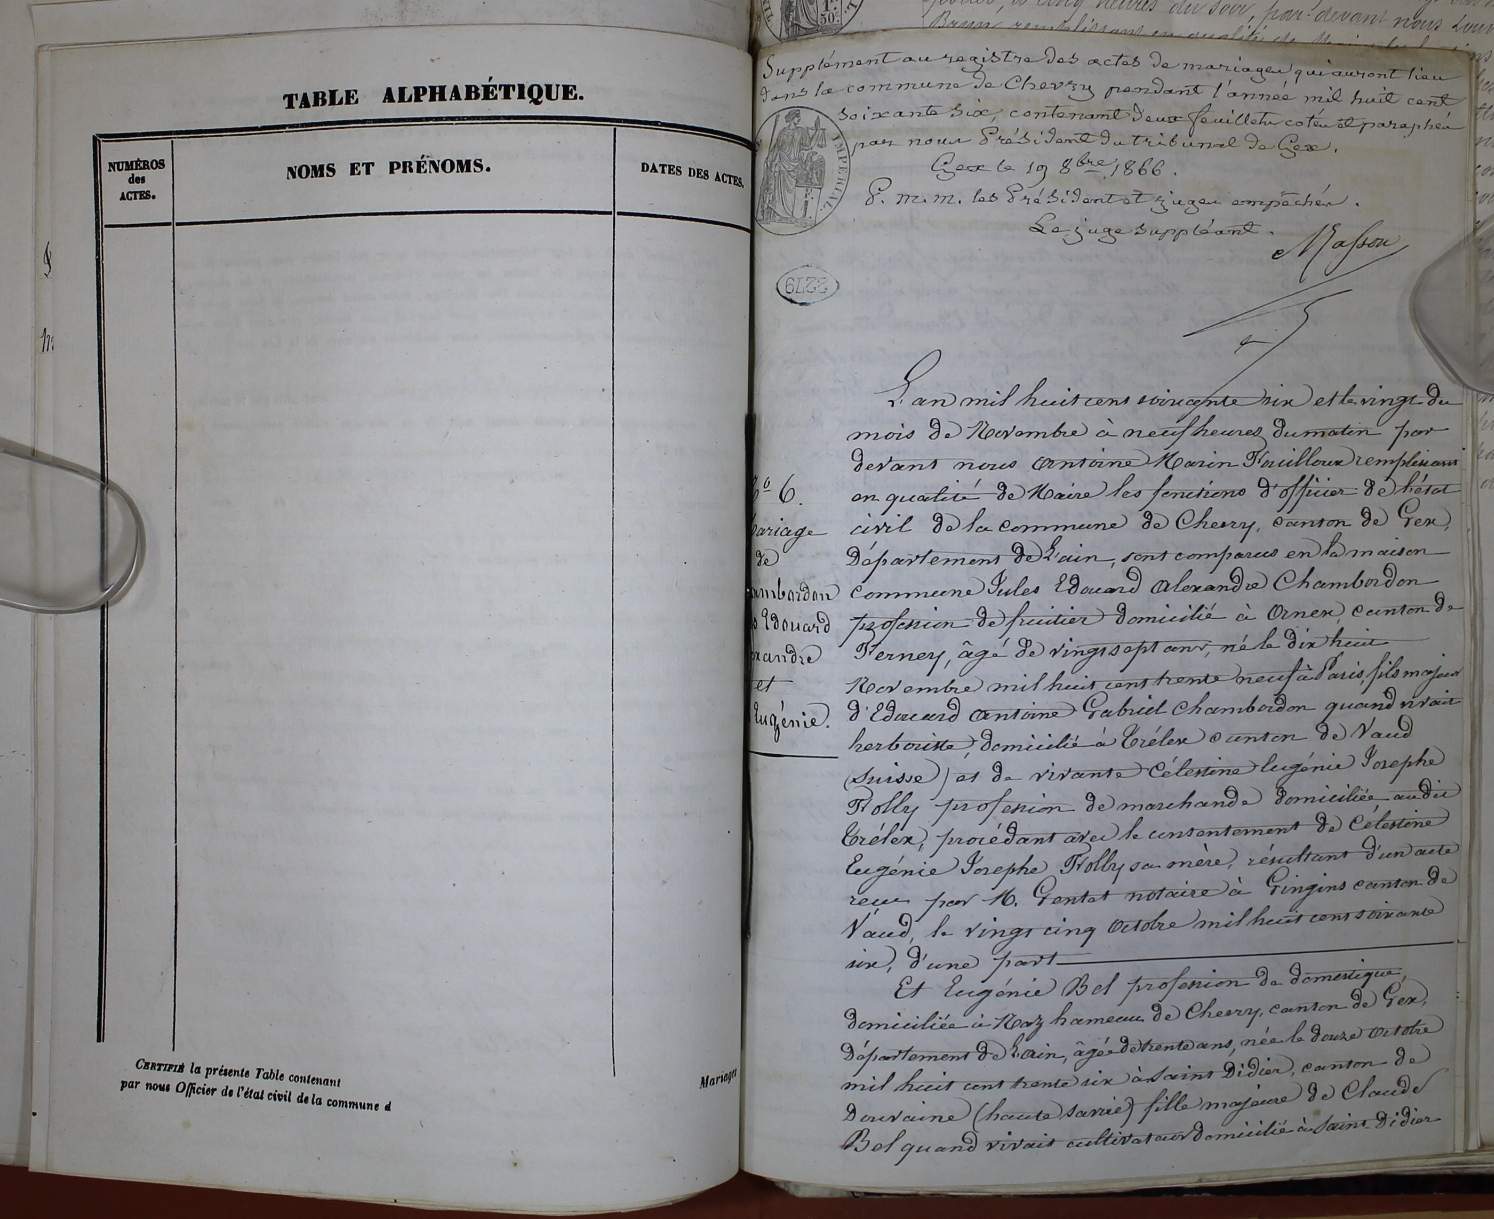 TABLE ALPHABÉTIQUE.
NUMÉROS
des
ACTES.
NOMS ET PRÉNOMS.
DATES DES ACTES.
CERTIFIÉ la présente Table contenant
par nous Officier de l'état civil de la commune d
Mariages
Supplément au registre des actes de mariages qui auront lieu
dans la commune de Chevry pendant l'année mil huit cent
soixante six, contenant deux feuillets cotés et paraphés
par nous Président du tribunal de Gex.
Gex le 19 8bre 1866.
P. m.m. les Président et juges empêchés.
Le juge suppléant.
Masson
IMPERIAL.
2279
No 6.
Mariage
de
ambordon
s Edouard
exandre
et
Eugénie.
L'an mil huit cent soixante six et le vingt du
mois de Novembre à neuf heures du matin par
devant nous Antoine Marin Fouilloux remplissant
en qualité de Maire les fonctions d'officier de l'état
civil de la commune de Chevry, canton de Gex,
Département de L'ain, sont comparus en la maison
commune Jules Edouard Alexandre Chambordon
profession de fruitier domicilié à Ornex, canton de
Ferney, âgé de vingt sept ans, né le dix huit
Novembre mil huit cent trente neuf à Paris, fils majeur
d'Edouard Antoine Gabriel Chambordon quand vivait
herboriste, domicilié à Trélex canton de Vaud
(Suisse) et de vivante Célestine Eugénie Josephe
Frolly profession de marchande domiciliée audit
Trélex, procédant avec le consentement de Célestine
Eugénie Josephe Frolly sa mère, résultant d'un acte
reçu par M. Gentet notaire à Gingins canton de
Vaud, le vingt cinq Octobre mil huit cent soixante
six, d'une part
Et Eugénie Bel profession de domestique,
domiciliée à Naz hameau de Chevry, canton de Gex,
Département de L'ain, âgée de trente ans, née le douze octobre
mil huit cent trente six à Saint Didier, canton de
Douvaine (haute savoie) fille majeure de Claude
Bel quand vivait cultivateur domicilié à Saint Didier